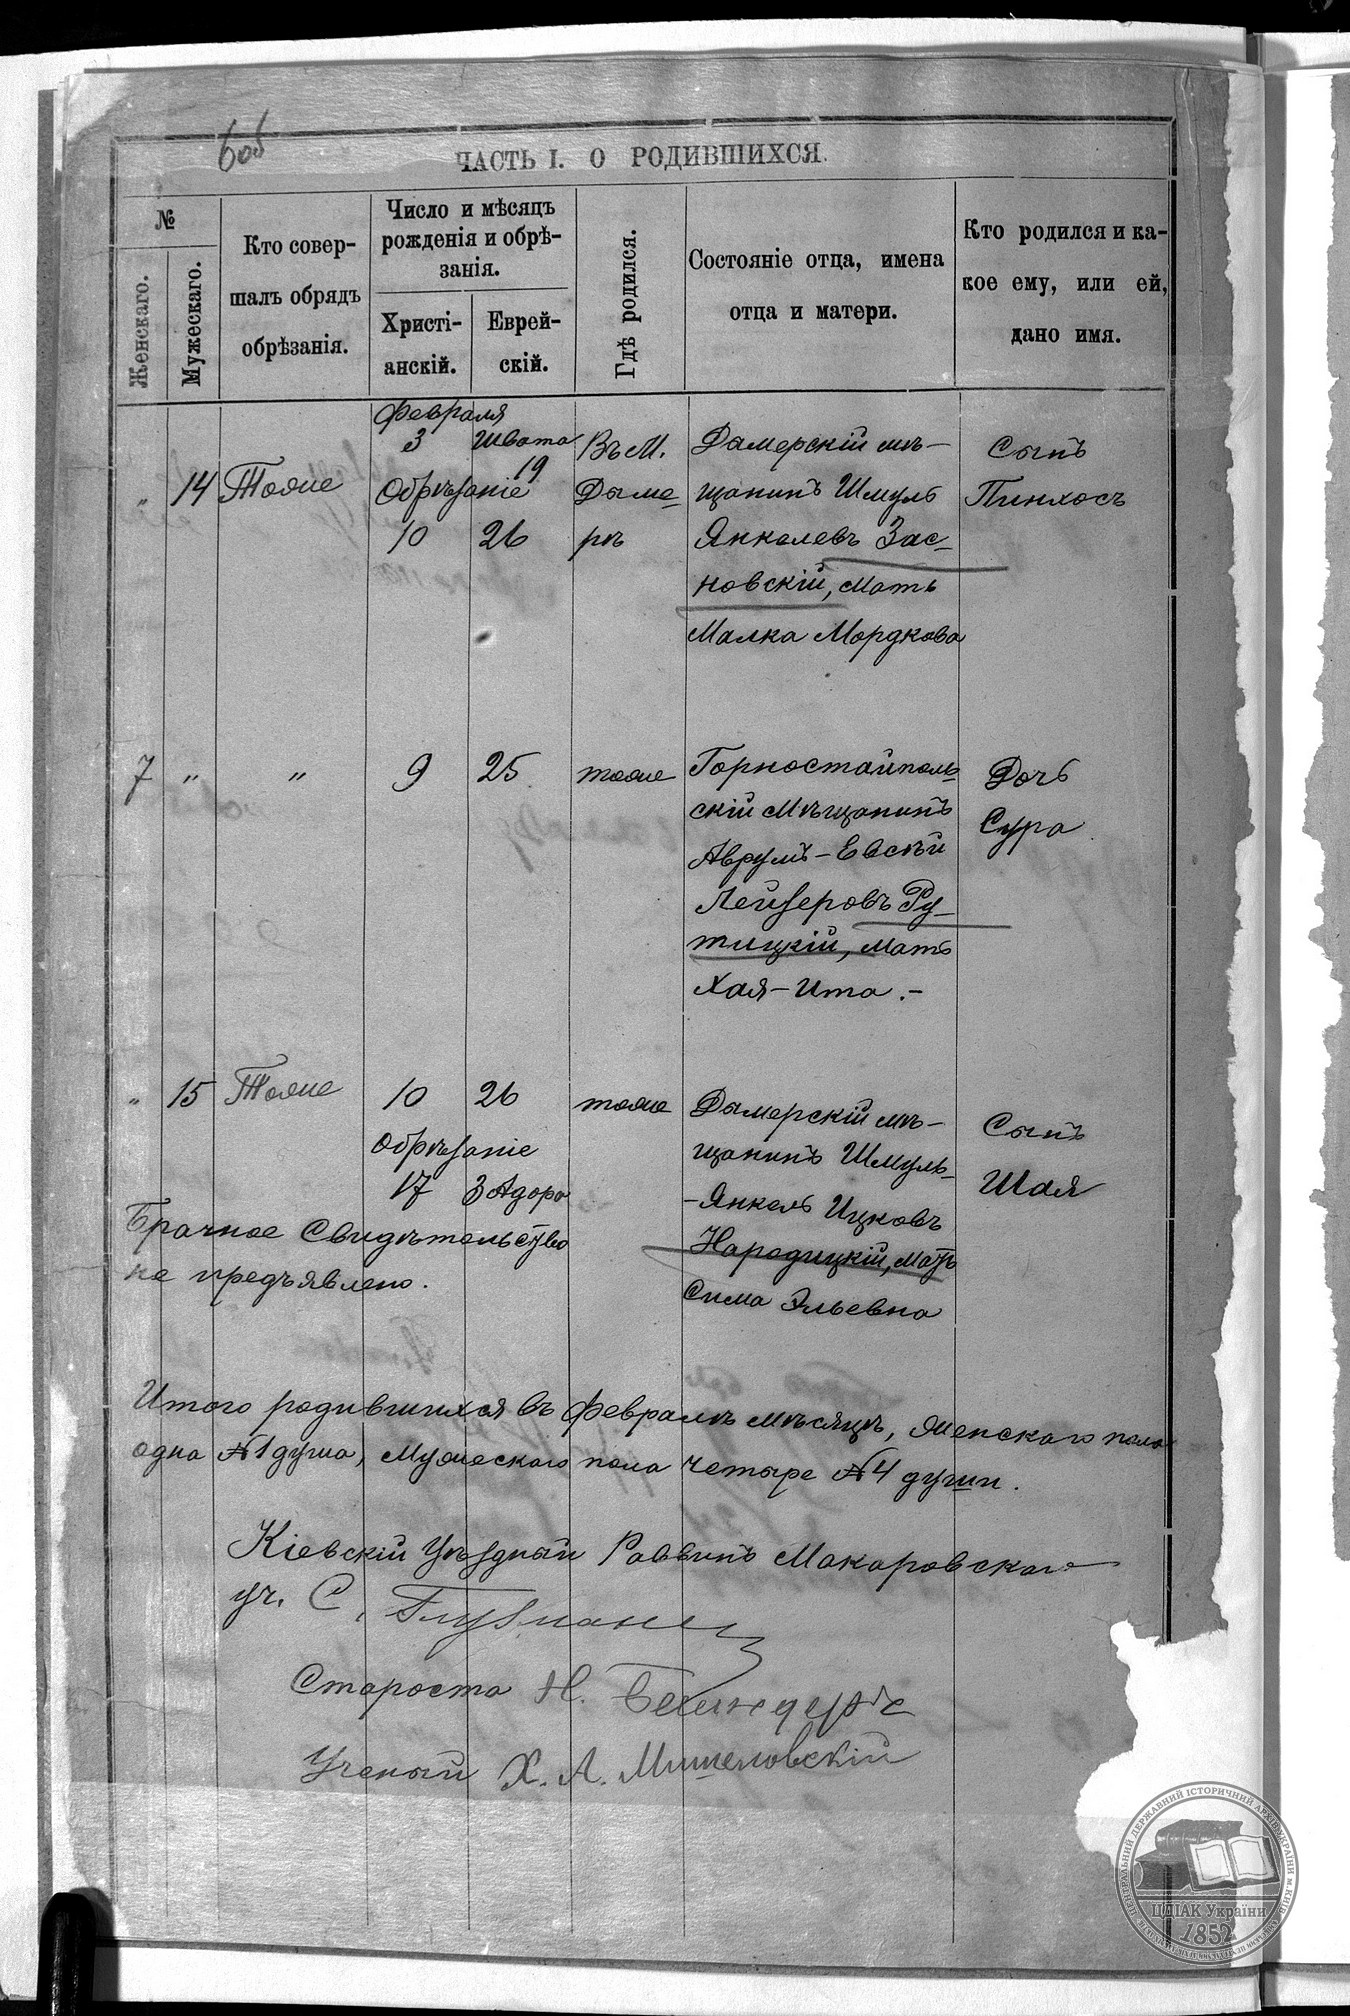 6об
ЧАСТЬ I. О РОДИВШИХСЯ.
№
Женскаго.
Мужескаго.
Кто совер-
шалъ обрядъ
обрѣзанія.
Число и мѣсяцъ
рожденія и обрѣ-
занія.
Христі-
анскій.
Еврей-
скій.
Гдѣ родился.
Состояніе отца, имена
отца и матери.
Кто родился и ка-
кое ему, или ей,
дано имя.
Февраля
" 14 Тоже
3 Швата 19
Обрѣзаніе
10 26
Въ М.
Дыме
рѣ
Дамерскій мѣ-
щанинъ Шмуль
Янкелевъ Зас-
новскій, мать
Малка Мордкова
Сынъ
Пинхосъ
7 " " 9 25 тоже
Горностайполь
скій мѣщанинъ
Аврумъ-Евсѣй
Лейзеровъ Ру-
тицкій, мать
Хая-Ита.-
Дочь
Сура
" 15 Тоже
10 26
Обрѣзаніе
17 3 Адара
тоже
Дымерскій мѣ-
щанинъ Шмуль-
-Янкель Ицковъ
Народицкій, мать
Сима Эльевна
Сынъ
Шая
Брачное Свидѣтельство
не предъявлено.
Итого родившихся въ Февралѣ мѣсяцѣ, Женскаго пола
одна №1 душа, Мужескаго пола четыре №4 души.
Кіевскій Уѣздный Раввинъ Макаровскаго
уч. С.
Староста Н.
Ученый Х. А. Мишеловскій
ЦЕНТРАЛЬНИЙ ДЕРЖАВНИЙ ІСТОРИЧНИЙ АРХІВ УКРАЇНИ М. КИЇВ
ЦДІАК України
1852